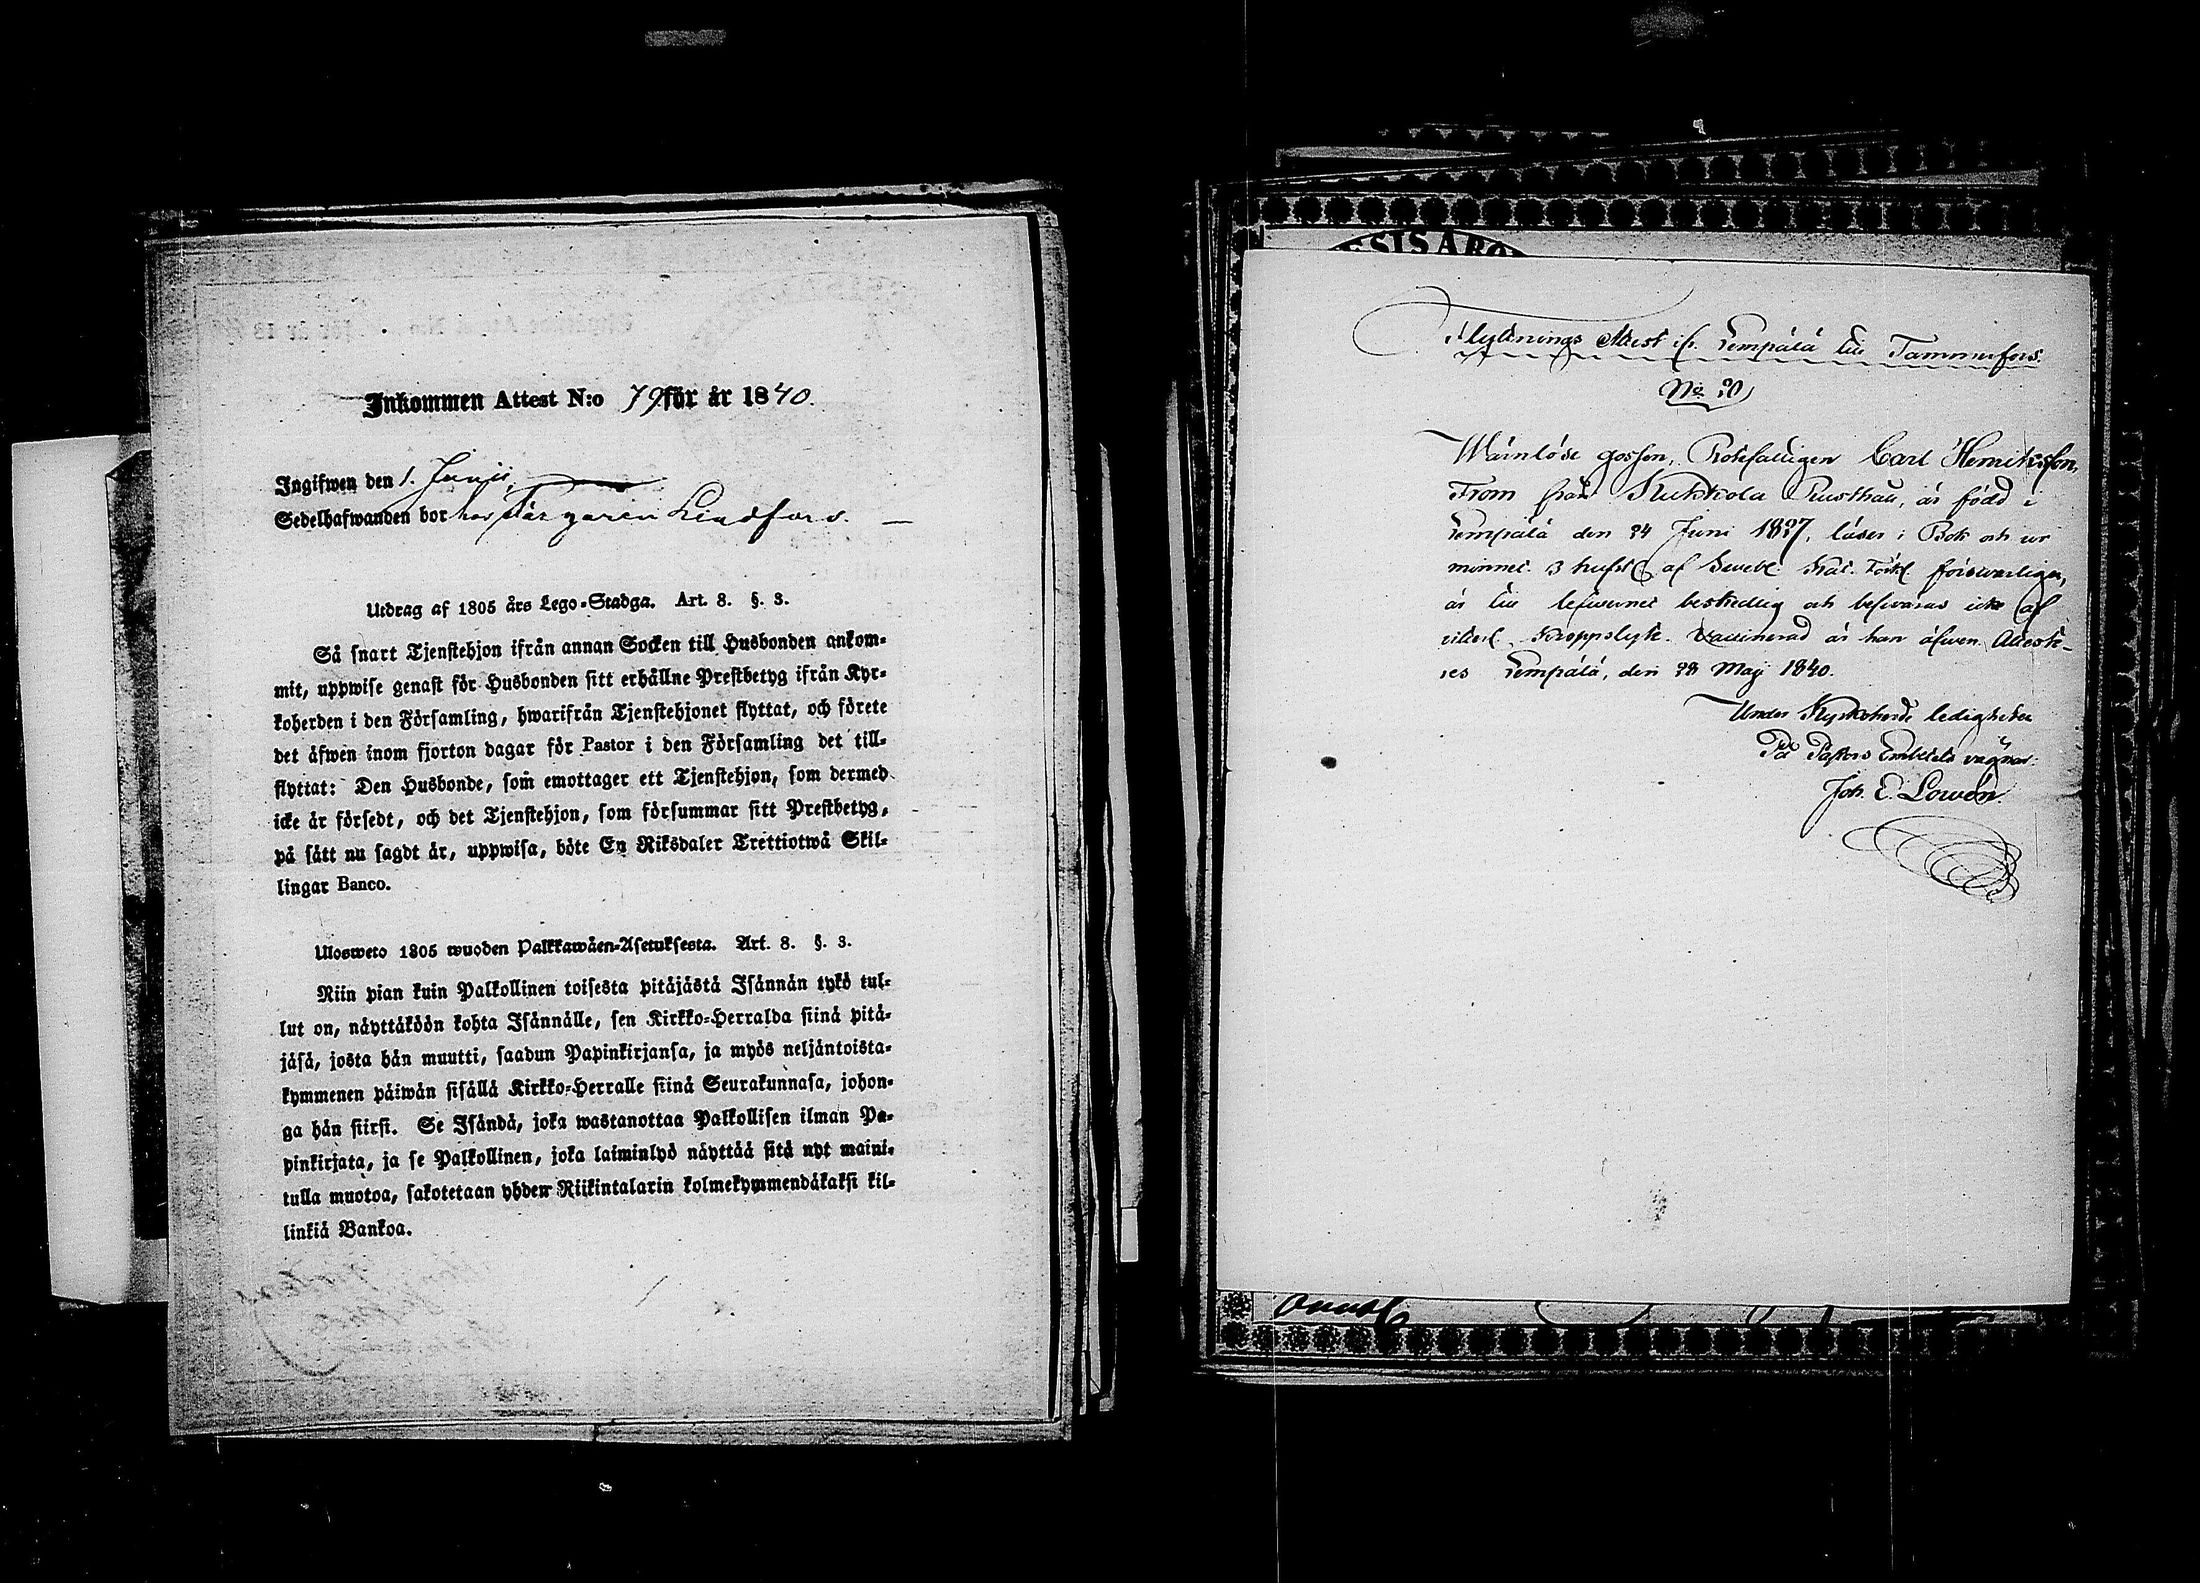 Inkommen Attest N:o 79 för år 1840.
Ingifwen den 1. Junii,
Sedelhafwanden bor hos Färgaren Lindfors.
Utdrag af 1805 års Lego-Stadga. Art. 8. §. 3.
Så snart Tjenstehjon ifrån annan Socken till Husbonden ankom-
mit, uppwise genast för Husbonden sitt erhållne Prestbetyg ifrån Kyr-
koherden i den Församling, hwarifrån Tjenstehjonet flyttat, och förete
det äfwen inom fjorton dagar för Pastor i den Församling det till-
flyttat: Den Husbonde, som emottager ett Tjenstehjon, som dermed
icke är försedt, och det Tjenstehjon, som försummar sitt Prestbetyg,
på sätt nu sagdt är, uppwisa, böte En Riksdaler Trettiotwå Skil-
lingar Banco.
Ulosweto 1805 wuoden Palkkawäen-Asetuksesta. Art. 8. §. 3.
Niin pian kuin Palkollinen toisesta pitäjästä Isännän tykö tul-
lut on, näyttäköön kohta Isännälle, sen Kirkko-Herralda siinä pitä-
jäsä, josta hän muutti, saadun Papinkirjansa, ja myös neljäntoista-
kymmenen päiwän sisällä Kirkko-Herralle siinä Seurakunnasa, johon-
ga hän siirsi. Se Isändä, joka wastanottaa Palkollisen ilman Pa-
pinkirjata, ja se Palkollinen, joka laiminlyö näyttää sitä nyt maini-
tulla muotoa, sakotetaan yhden Riikintalarin kolmekymmendäkaksi kil-
linkiä Bankoa.
SISARO
Flyttnings Attest ifr. Lempälä till Tammerfors.
No 20
Wärnlöse gossen, Rotefattigen Carl Henriksson
From från Kukkola Rusthåll, är född i
Lempälä den 24 Juni 1827, läser i Bok och ur
minnet 3 hufst. af Svebel. Kat. förswarligen,
är till lefwernet beskedlig och beswäras icke af
Kroppslyte. Vaccinerad är han äfwen. Atteste-
res Lempälä, den 28 Maji 1840.
Under Kyrkoherde ledigheten
På Pastors Embetets vägnar:
Joh. E. Lowén.